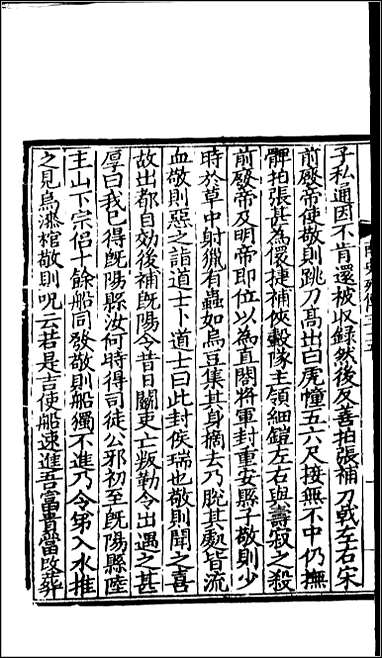 子私通因不肯還被収録然後反善拍張補刀戟左右宋
前廢帝使敬則跳刀髙出白虎幢五六尺接無不中仍撫
髀拍張甚為儇捷補俠轂隊主領細鎧左右與壽寂之殺
前廢帝及明帝即位以為直閤將軍封重安縣子敬則少
時於草中射獵有蟲如烏豆集其身摘去乃脫其處皆流
血敬則惡之詣道士卜道士曰此封侯瑞也敬則聞之喜
故出都自効後補旣陽令昔日鬬吏亡叛勒令出遇之甚
厚曰我已得旣陽縣汝何時得司徒公邪初至旣陽縣陸
主山下宗侣十餘船同發敬則船獨不進乃令弟入水推
之見烏漆棺敬則呪云若是吉使船速進吾富貴當改葬